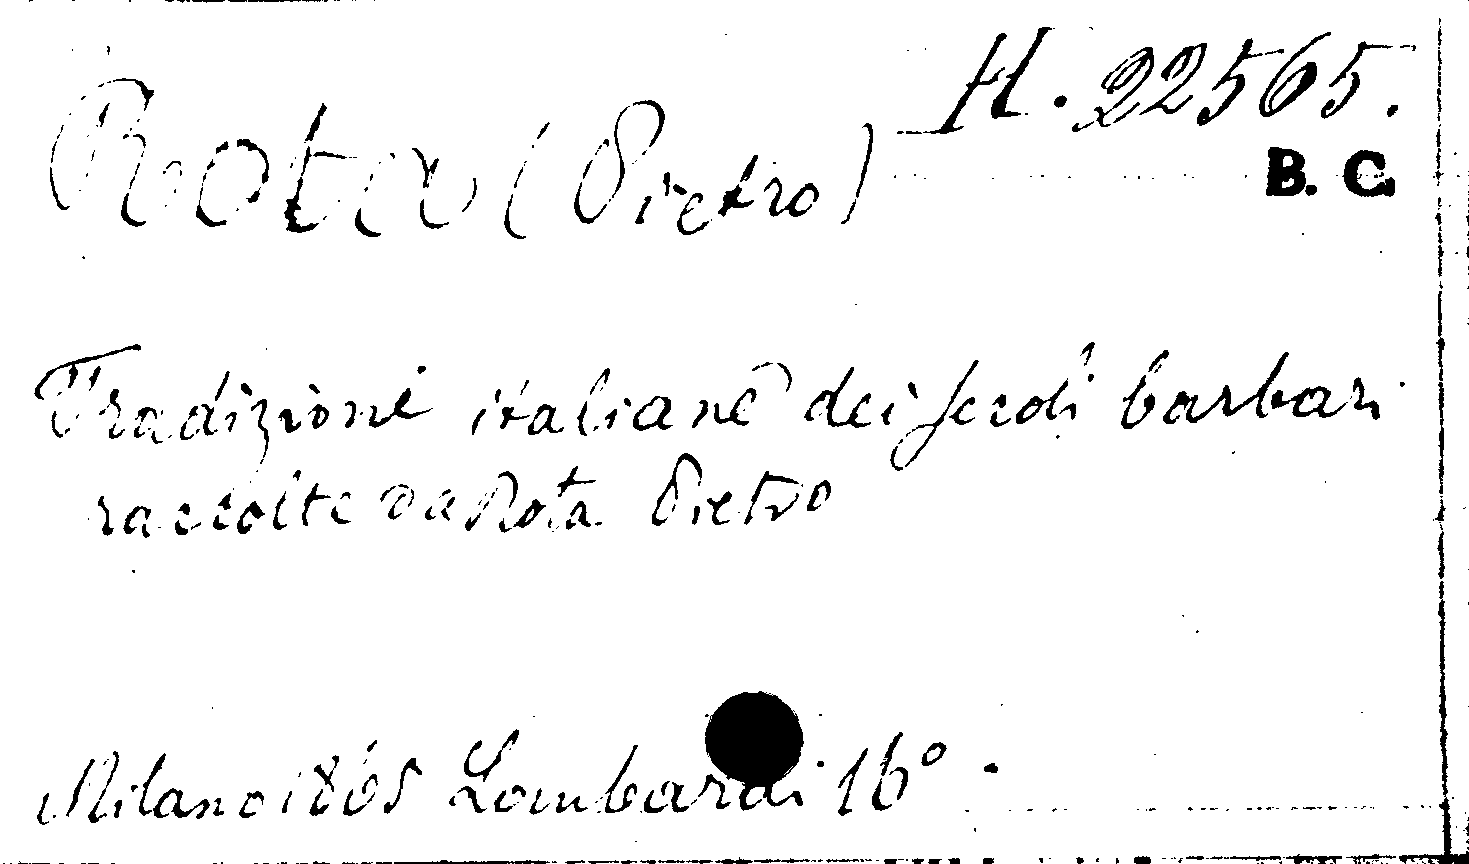 H. 22565.
B. C.
Rota (Pietro)
Tradizioni italiane dei secoli barbari
raccolte da Rota Pietro
Milano 1865 Lombardi 16°.